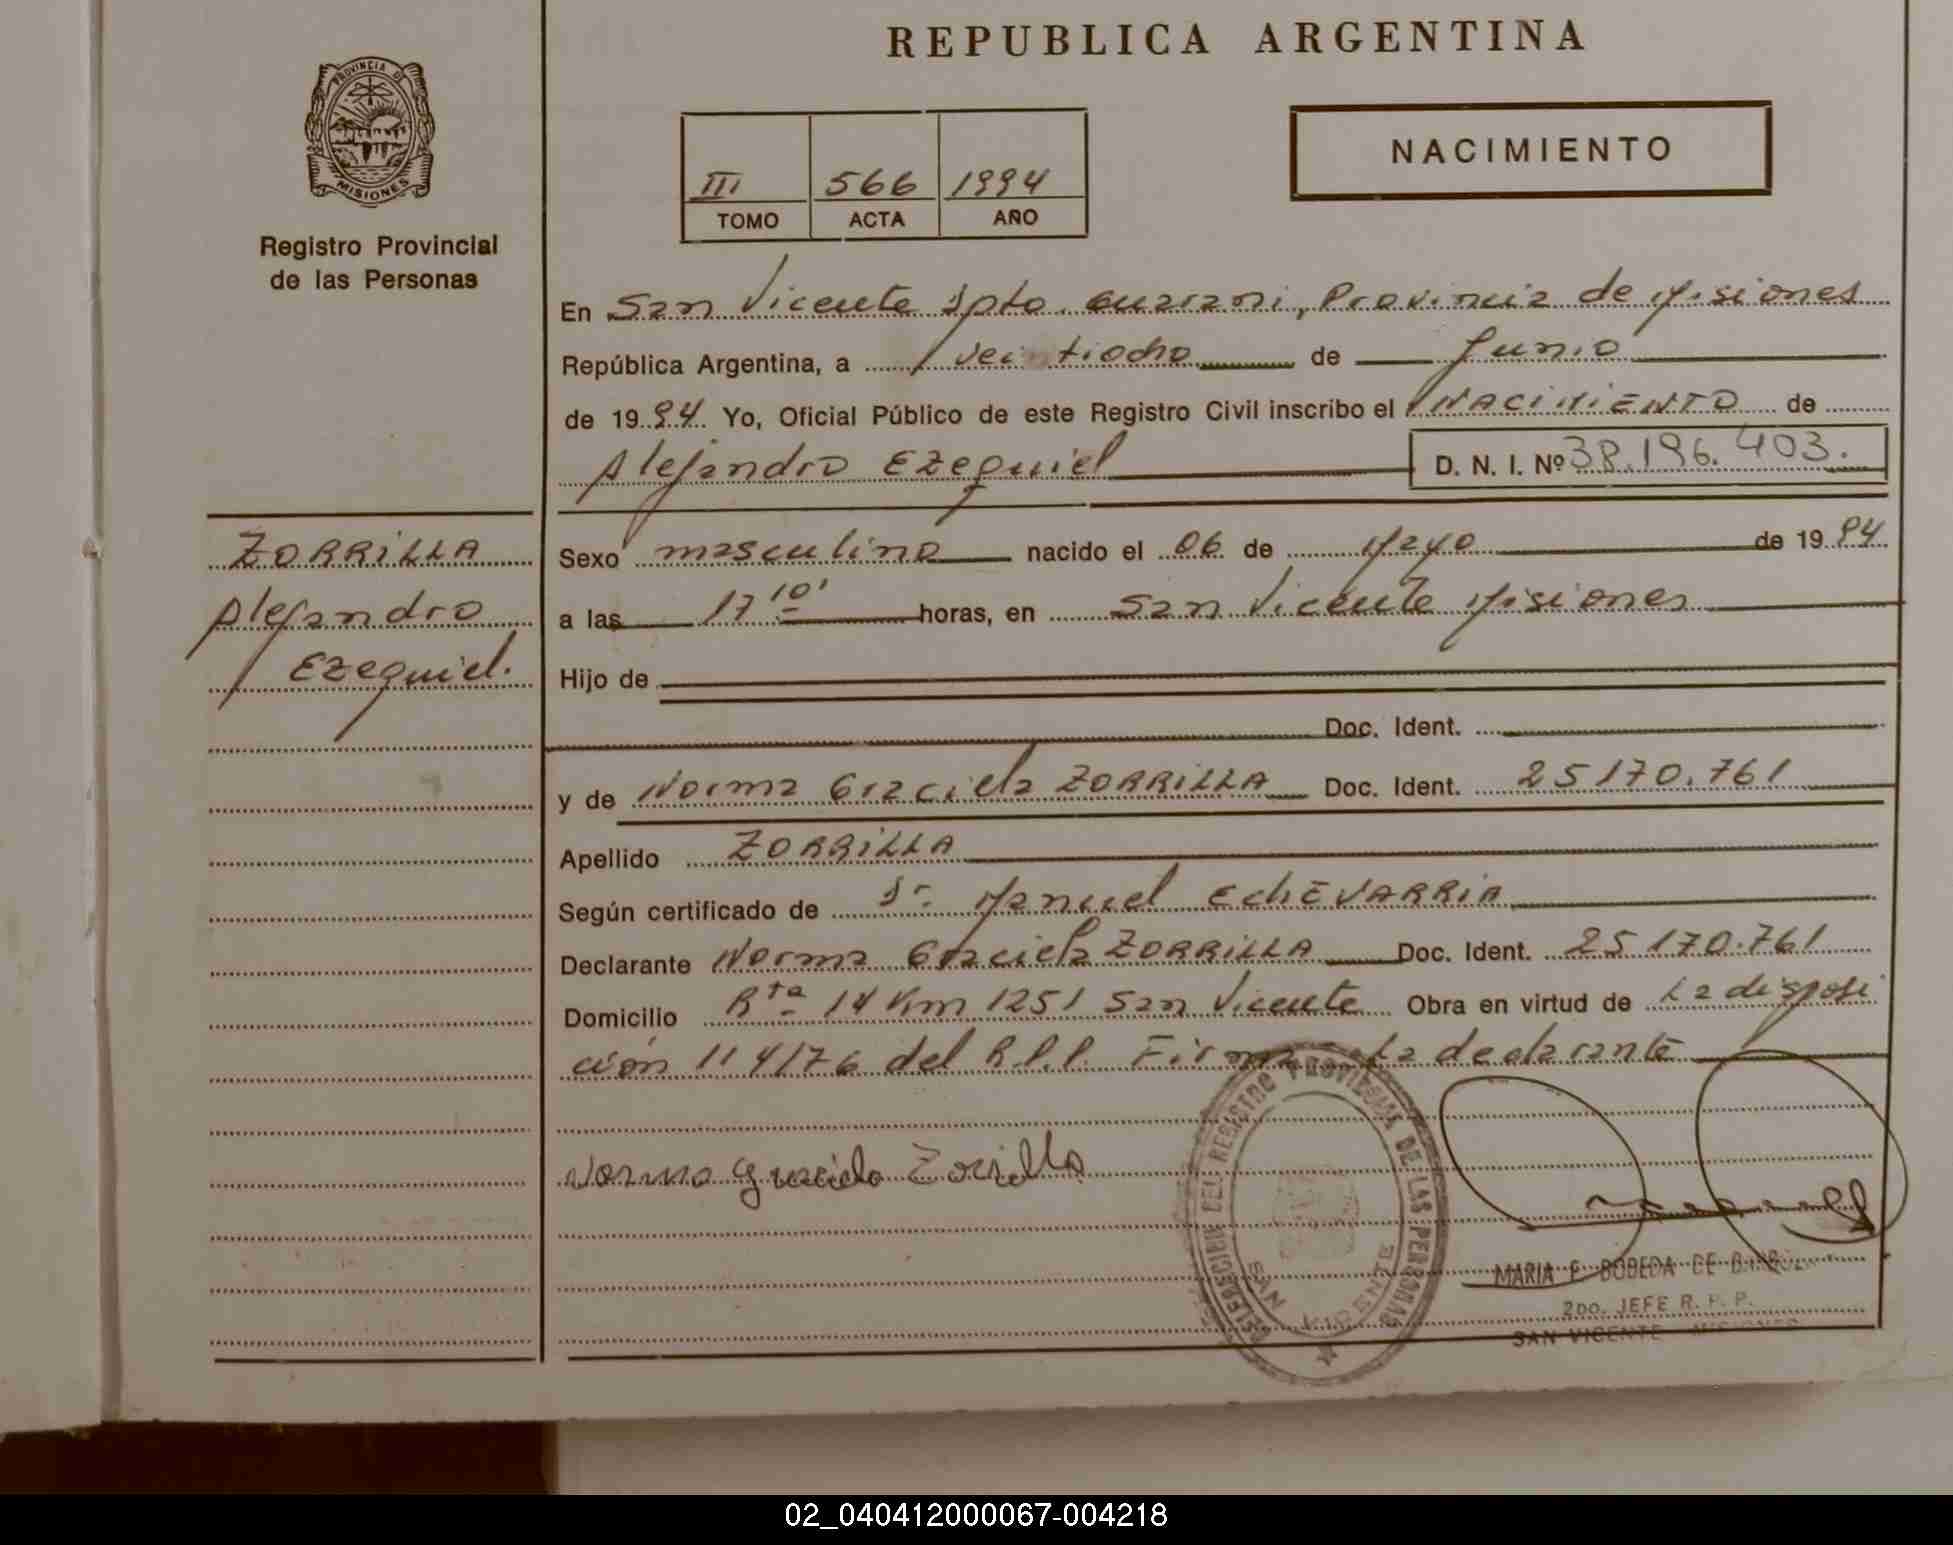 REPUBLICA ARGENTINA
PROVINCIA DE
MISIONES
Registro Provincial
de las Personas
III 566 1994
TOMO ACTA AÑO
NACIMIENTO
En San Vicente Dpto. Guarani, Provincia de Misiones
República Argentina, a veintiocho de Junio
de 1994 Yo, Oficial Público de este Registro Civil inscribo el NACIMIENTO de
Alejandro Ezequiel D. N. I. Nº 38.196.403.
ZORRILLA
Alejandro
Ezequiel.
Sexo masculino nacido el 06 de Mayo de 1994
a las 17 10' horas, en San Vicente Misiones
Hijo de
Doc. Ident.
y de Norma Graciela ZORRILLA Doc. Ident. 25170.761
Apellido ZORRILLA
Según certificado de Dr. Manuel EchEVARRIA
Declarante Norma Graciela ZORRILLA Doc. Ident. 25170.761
Domicilio Rta 14 Km 1251 San Vicente Obra en virtud de La disposi
ción 114/76 del R.P.P. Firma La declarante
Norma Graciela Zorilla
DEL REGISTRO PROVINCIAL DE LAS PERSONAS
SAN VICENTE
MARIA E. BOBEDA DE
2DO. JEFE R. P. P.
SAN VICENTE - MISIONES
02_040412000067-004218